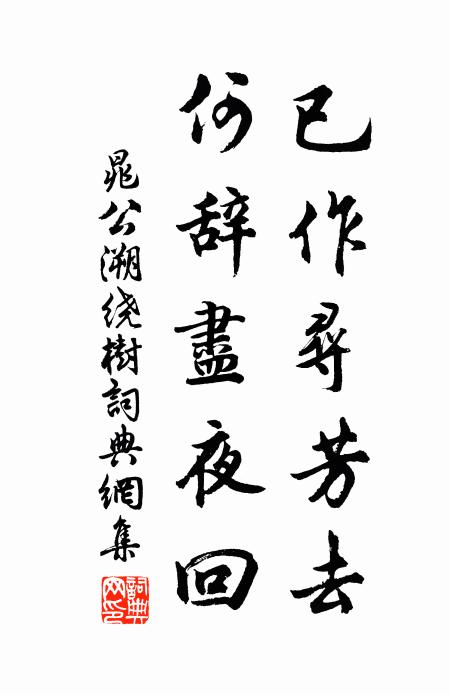 已作尋芳去
何辞盡夜回
晁公溯绕樹詞典網集
詞典網印